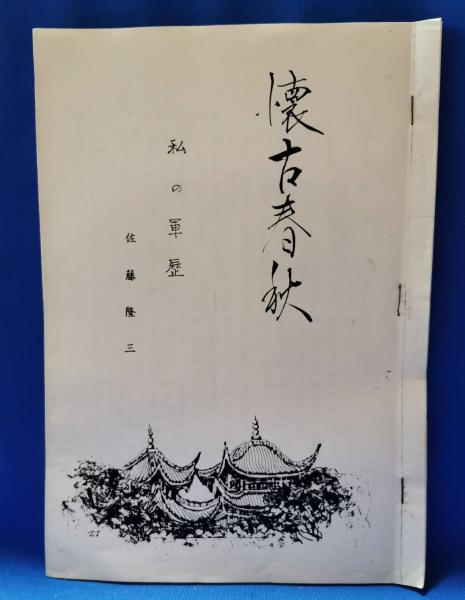 懐古春秋
私の軍歴
佐藤隆三